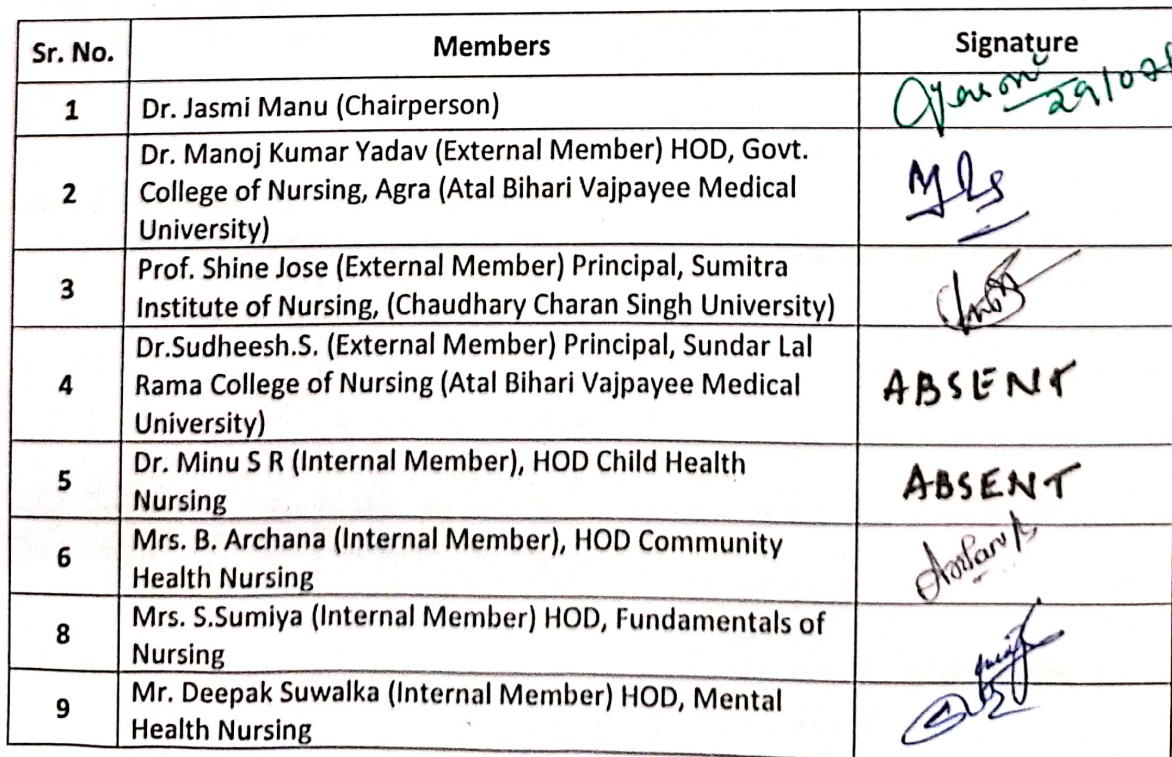 Sr. No. Members Signature
1 Dr. Jasmi Manu (Chairperson)
2 Dr. Manoj Kumar Yadav (External Member) HOD, Govt.
College of Nursing, Agra (Atal Bihari Vajpayee Medical
University)
3 Prof. Shine Jose (External Member) Principal, Sumitra
Institute of Nursing, (Chaudhary Charan Singh University)
4 Dr.Sudheesh.S. (External Member) Principal, Sundar Lal
Rama College of Nursing (Atal Bihari Vajpayee Medical
University)
ABSENT
5 Dr. Minu S R (Internal Member), HOD Child Health
Nursing
ABSENT
6 Mrs. B. Archana (Internal Member), HOD Community
Health Nursing
8 Mrs. S.Sumiya (Internal Member) HOD, Fundamentals of
Nursing
9 Mr. Deepak Suwalka (Internal Member) HOD, Mental
Health Nursing